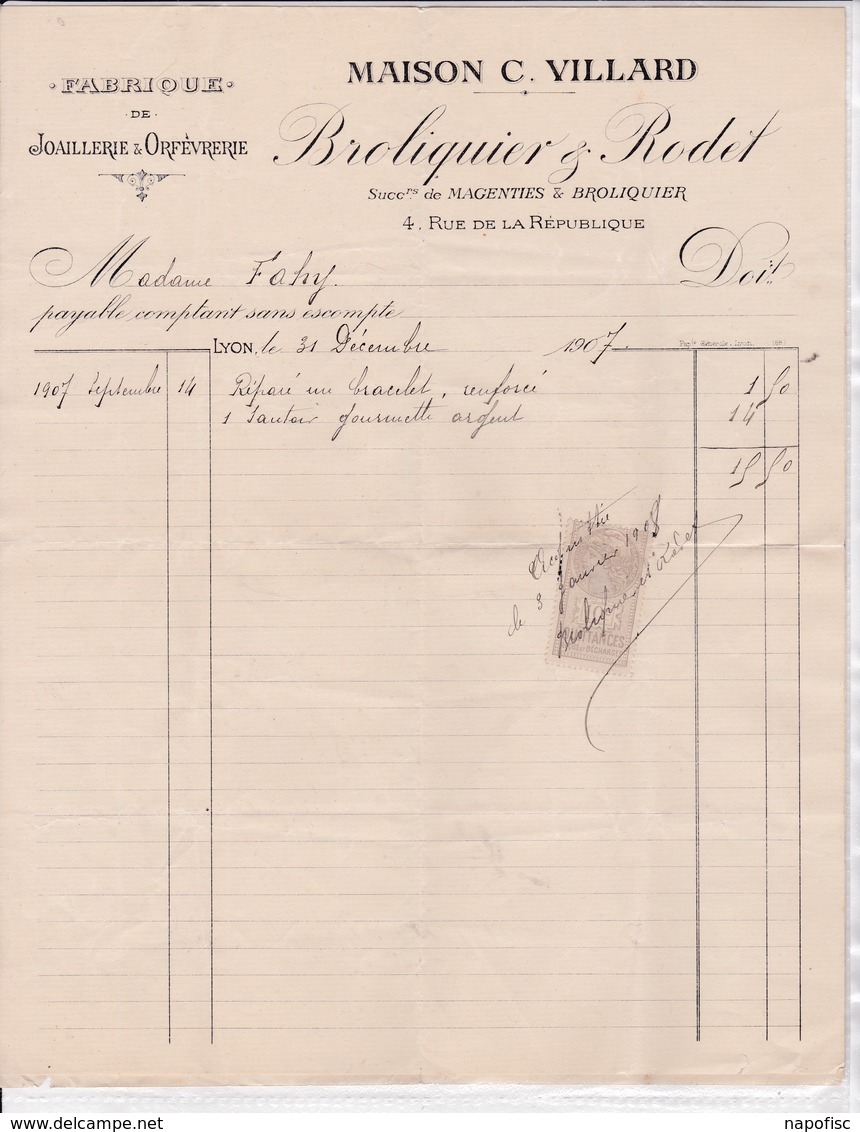 · FABRIQUE ·
· DE ·
JOAILLERIE & ORFÈVRERIE
MAISON C. VILLARD
Broliquier & Rodet
Succrs de MAGENTIES & BROLIQUIER
4, RUE DE LA RÉPUBLIQUE
Madame Fahy. Doit
payable comptant sans escompte
LYON, le 31 Décembre 1907
1907 Septembre 14 Réparé un bracelet, renforcé 1 50
1 Sautoir gourmette argent 14
15 50
Acquittée
le 3 Janvier 1908
Broliquier et Rodet
QUITTANCES
napofisc